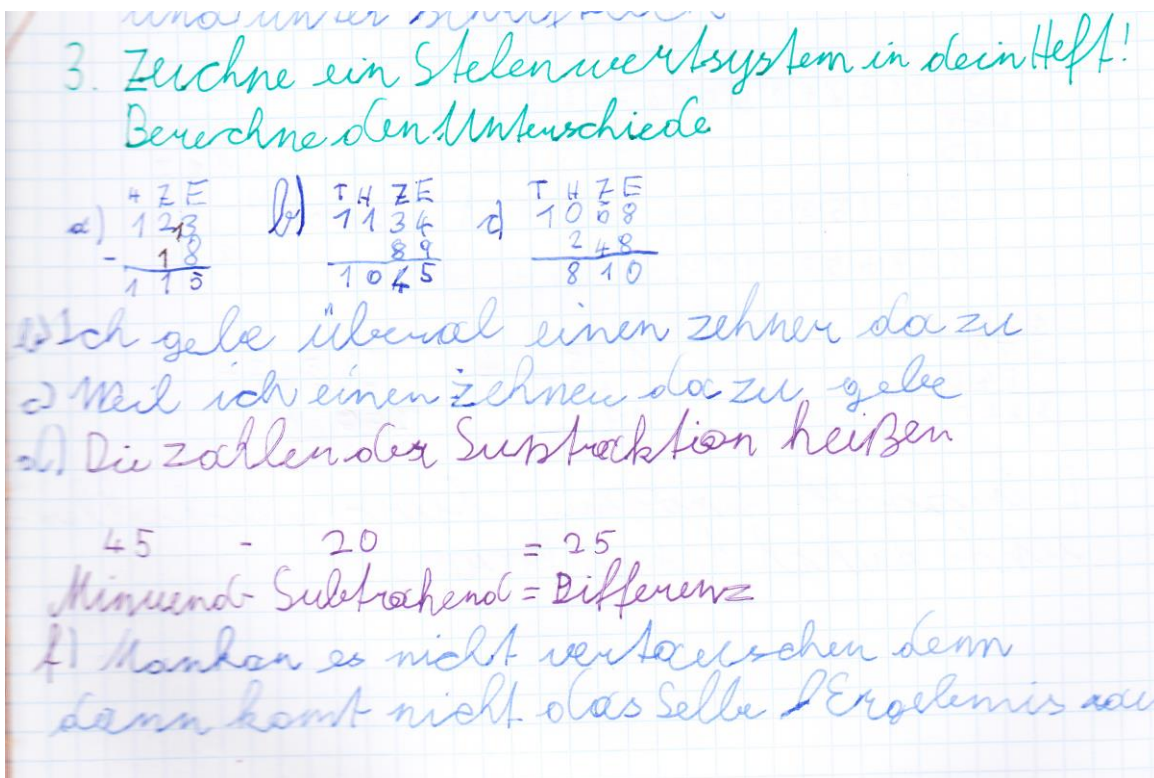 und unter
3. Zeichne ein Stelenwertsystem in dein Heft!
Berechne den Unterschiede
H Z E
a) 123
- 18
115
b) T H Z E
1134
89
1045
c) T H Z E
1058
248
810
b) Ich gebe überal einen zehner da zu
c) Weil ich einen zehner da zu gebe
d) Die zahlen der Subtracktion heißen
45 - 20 = 25
Minuend - Subtrahend = Differenz
f) Mankan es nicht vertauschen denn
dann komt nicht das Selbe Ergebnis rau